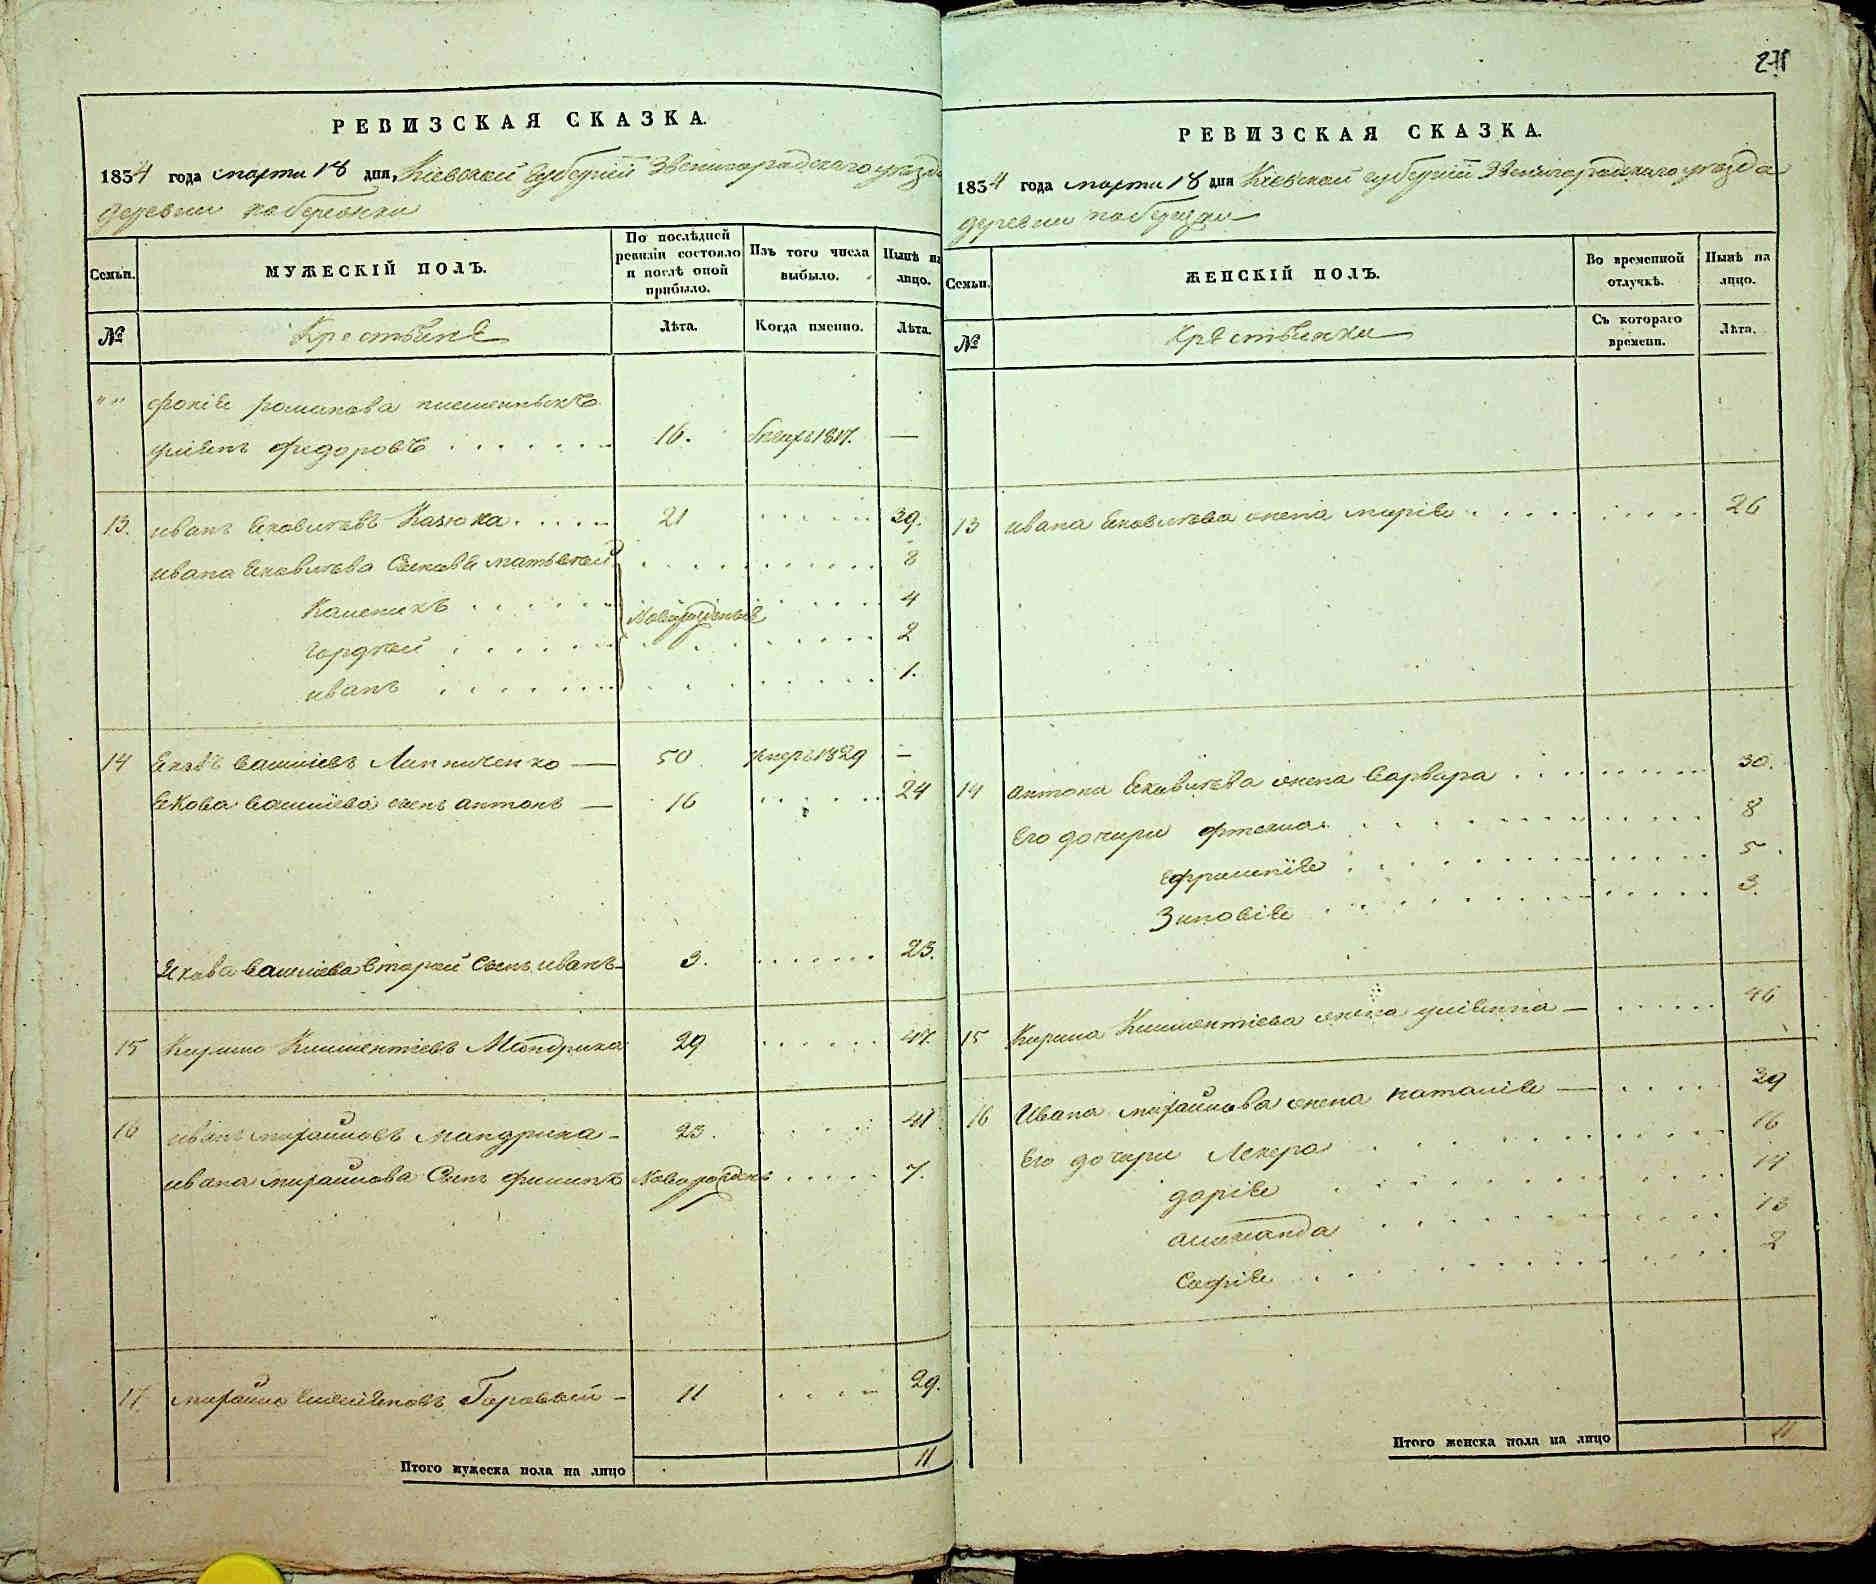 271
РЕВИЗСКАЯ СКАЗКА.
1834 года марта 18 дня, Кіевской Губерніи Звенигородскаго уезда
деревни побережки
Семьи.
МУЖЕСКІЙ ПОЛЪ.
По послѣдней ревизіи состояло и послѣ оной прибыло.
Изъ того числа выбыло.
Нынѣ на лицо.
№
Крестьяне
Лѣта.
Когда именно.
Лѣта.
"" фокіе романова племенныкъ
федоровъ 16. 1817. —
13. иванъ Яковлевъ Казюка 21 39.
ивана Яковлева Сыновя матвѣй 8
Каленикъ 4
Новорожденые
гордѣй 2
иванъ 1.
14 Яковъ василіевъ Липниченко — 50 умеръ 1829 —
Якова василіева сынъ антонъ — 16 24
Якова василіева вторый сынъ иванъ 3. 23.
15 Кирило Климентіевъ Мандрика 29 47.
16 иванъ михайловъ мандрика 23. 41
ивана михайлова сынъ филипъ Новорожденъ 7.
17 михайло Горовый 11 29.
Итого мужеска пола на лицо 11
РЕВИЗСКАЯ СКАЗКА.
1834 года марта 18 дня Кіевской губерніи Звенигородскаго уезда
деревни побережки
Семьи.
ЖЕНСКІЙ ПОЛЪ.
Во временной отлучкѣ.
Нынѣ на лицо.
№
Крестьянки
Съ котораго времени.
Лѣта.
13 ивана Яковлева жена маріе 26
14 антона Яковлева жена варвара 30.
Его дочери 8
Ефросиніе 5
Зиновіе 3.
15 Кирила Климентіева жена уліянна — 46
16 Ивана михайлова жена наталіе — 39
Его дочери Лекера 16
даріе 14
13
Софіе 2
Итого женска пола на лицо 11